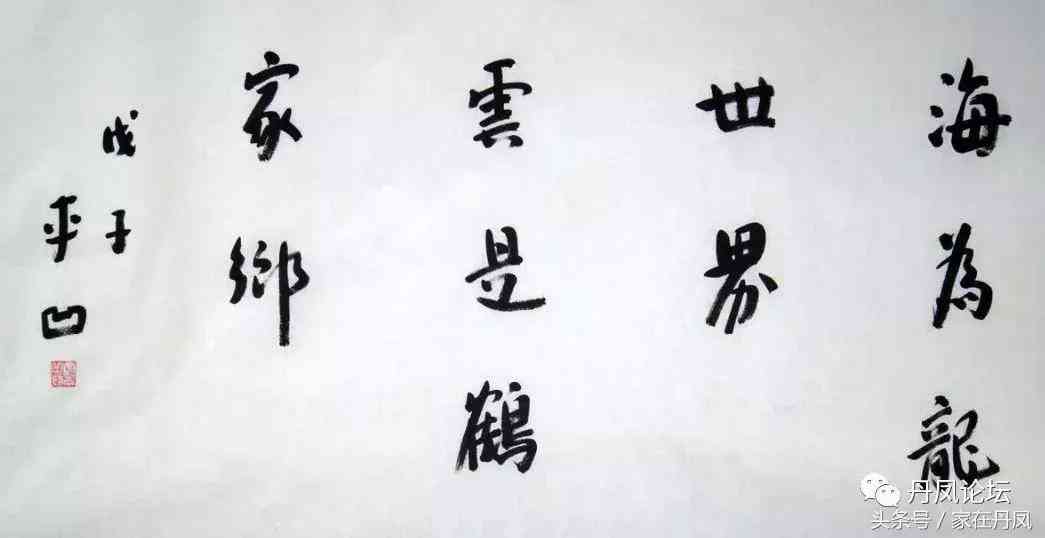 海為龍
世界
雲是鶴
家鄉
戊子
平凹
丹凤论坛
头条号 / 家在丹凤